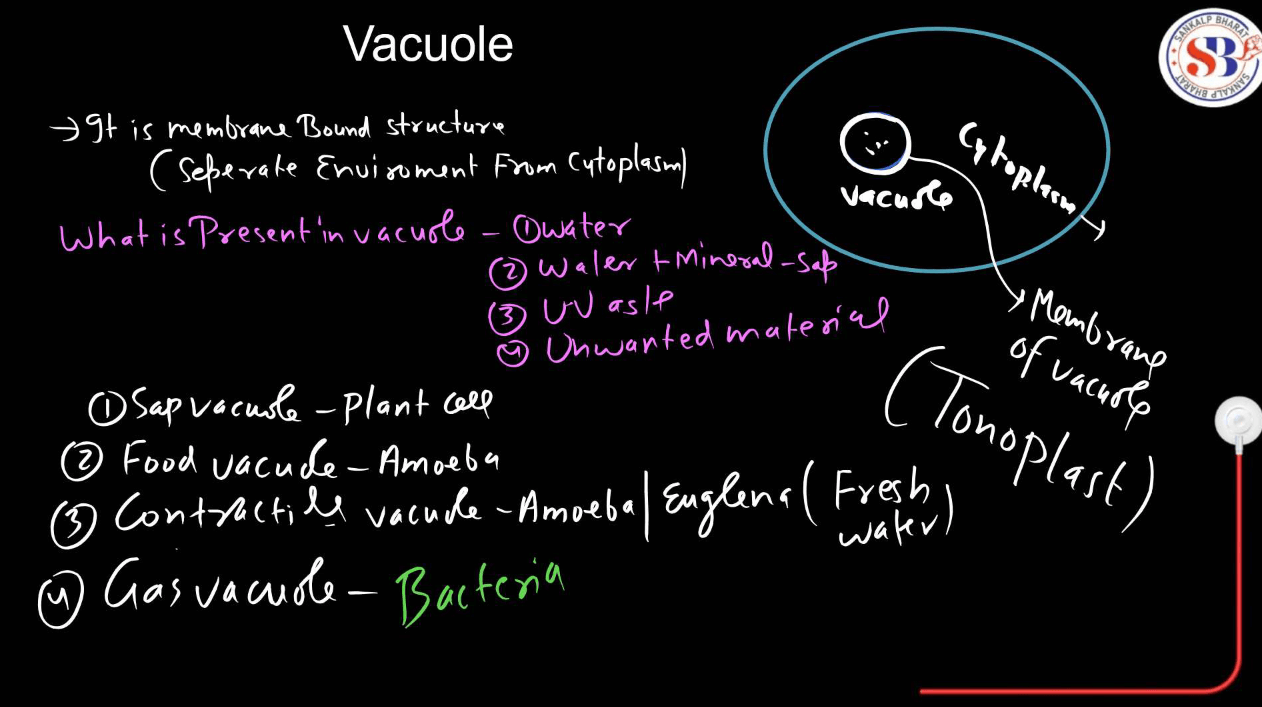 Vacuole
SANKALP BHARAT
SB
SANKALP BHARAT
→ It is membrane Bound structure
(Seperate Enviroment From Cytoplasm)
What is Present in vacuole - ① water
② Water + Mineral - Sap
③ Waste
④ Unwanted material
① Sap vacuole - Plant cell
② Food vacuole - Amoeba
③ Contractile vacuole - Amoeba | Euglena (Fresh
water)
④ Gas vacuole - Bacteria
vacuole
Cytoplasm
Membrane
of vacuole
(Tonoplast)